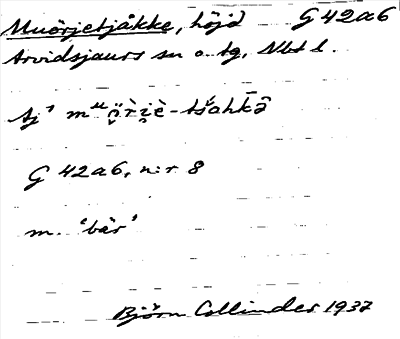 Muörjetjåkke, höjd G 42a6
Arvidsjaurs sn o. tg, Nbt l.
G 42a6, n:r 8
m. 'bär'
Björn Collinder 1937